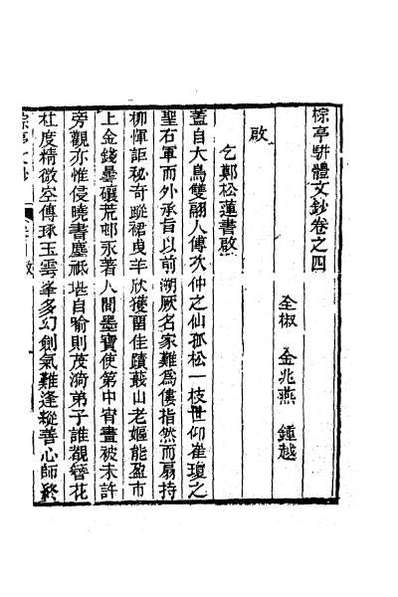 棕亭駢體文鈔卷之四
全椒　金兆燕　鍾越
啟
乞鄭松蓮書啟
蓋自大鳥雙翮人傳次仲之仙孤松一枝世仰崔瓊之
聖右軍而外承旨以前溯厥名家難為僂指然而扇持
柳惲詎秘奇蹤裙曳羊欣獲留佳蹟蕺山老嫗能盈市
上金錢曇礦荒邨永著人間墨寶使第中宵畫被未許
旁觀亦惟侵曉書塵祇堪自喻則茂漪弟子誰觀簪花
杜度精微空傳琢玉雲峯多幻劍氣難逢縱善心師終